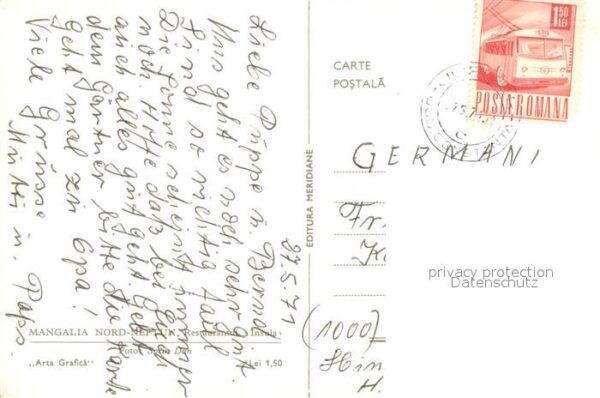 Liebe Puppe u. Bernd
Uns geht es noch sehr gut.
Sind so richtig faul
Die Sonne scheint immer
noch. Hoffe daß bei Euch
auch alles gut geht. Gebt
dem Gärtner bitte die Karte
Geht mal zu Opa!
Viele Grüsse
Mutti u. Paps.
27.5.71
MANGALIA NORD-NEPTUN, Restaurantul „Insula"
Foto: Dan
„Arta Grafică" Lei 1,50
EDITURA MERIDIANE
CARTE
POȘTALĂ
1,50
LEI
POSTA ROMANA
GERMANI
Fr.
(1000)
H.
privacy protection
Datenschutz